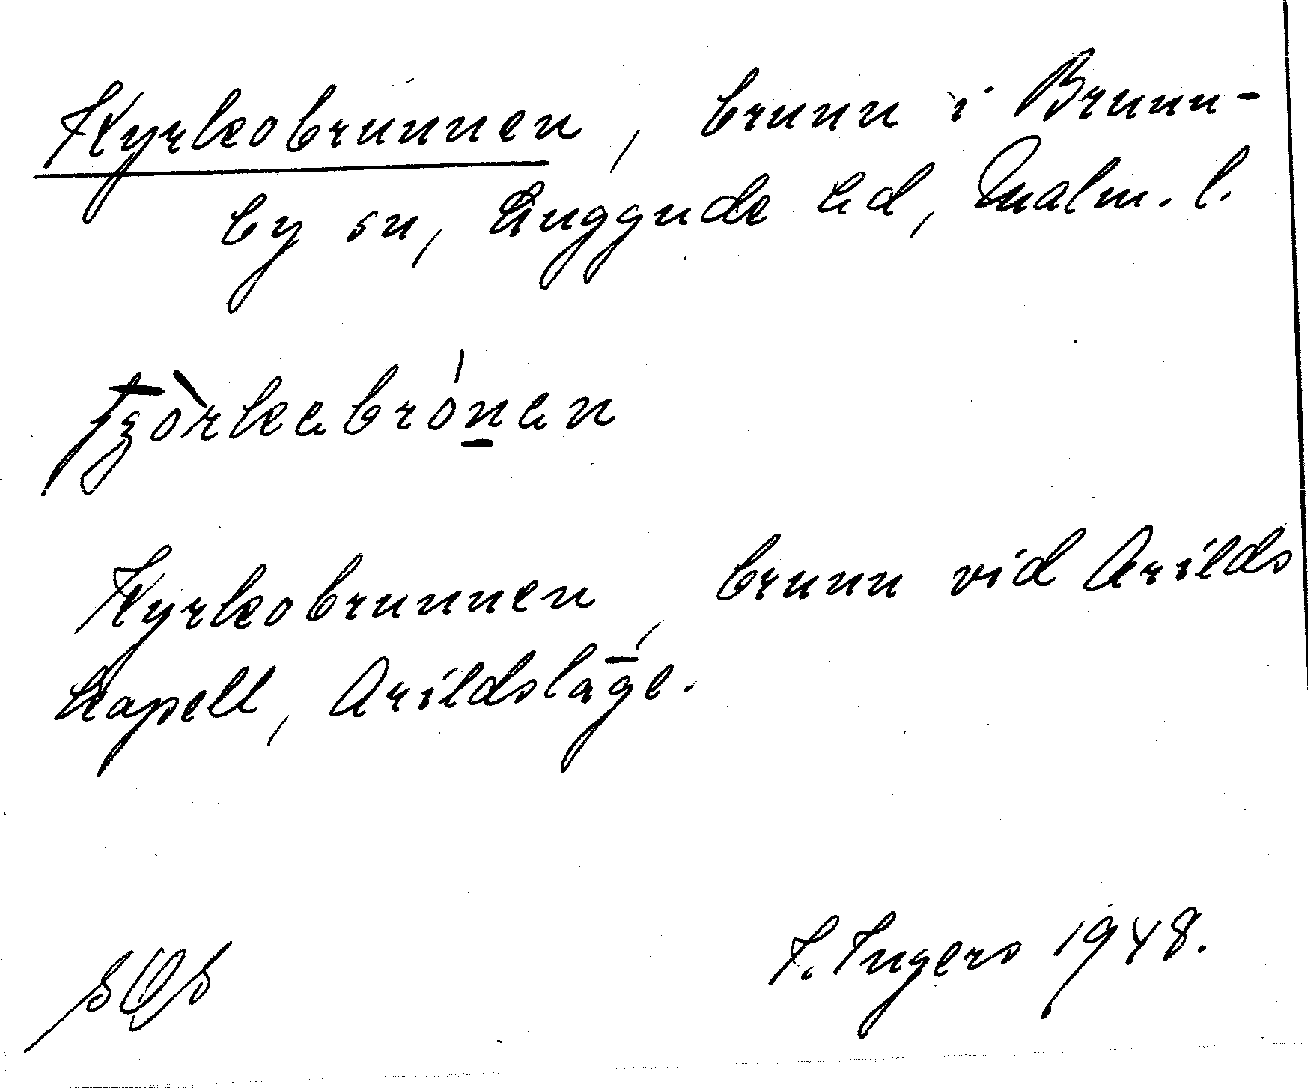 Kyrkobrunnen, brunn i Brunn-
by sn, Luggude hd, Malm. l.
Kyrkobrunnen, brunn vid Arilds
kapell, Arildsläge.
I. Ingers 1948.